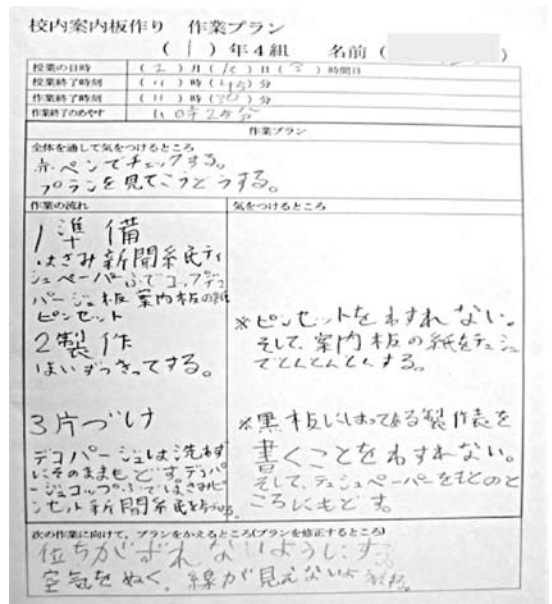 校内案内板作り 作業プラン
( 1 ) 年4組 名前 ( )
授業の日時 ( 2 ) 月 ( ) 日 ( 3 ) 時間目
授業終了時刻 ( 11 ) 時 ( 45 ) 分
作業終了時刻 ( 11 ) 時 ( 30 ) 分
作業終了のめやす 11時2 分
作業プラン
全体を通して気をつけるところ
赤ペンでチェックする。
プランを見てこうどうする。
作業の流れ
1準備
はさみ新聞紙ティ
シュペーパーふでコップデコ
パージュ板案内板の紙
ピンセット
2製作
はいずっきってする。
3片づけ
デコパージュは洗わず
にそのままもどす。デコパ
ージュコップふではさみピ
ンセット新聞紙を
気をつけるところ
※ピンセットをわすれない。
そして、案内板の紙をテュシュ
でとんとんとんする。
※黒板にはってある製作表を
書くことをわすれない。
そして、テュシュペーパーをもとのと
ころにもどす。
次の作業に向けて、プランをかえるところ(プランを修正するところ)
位ちがずれないようにす
空気をぬく。線が見えない